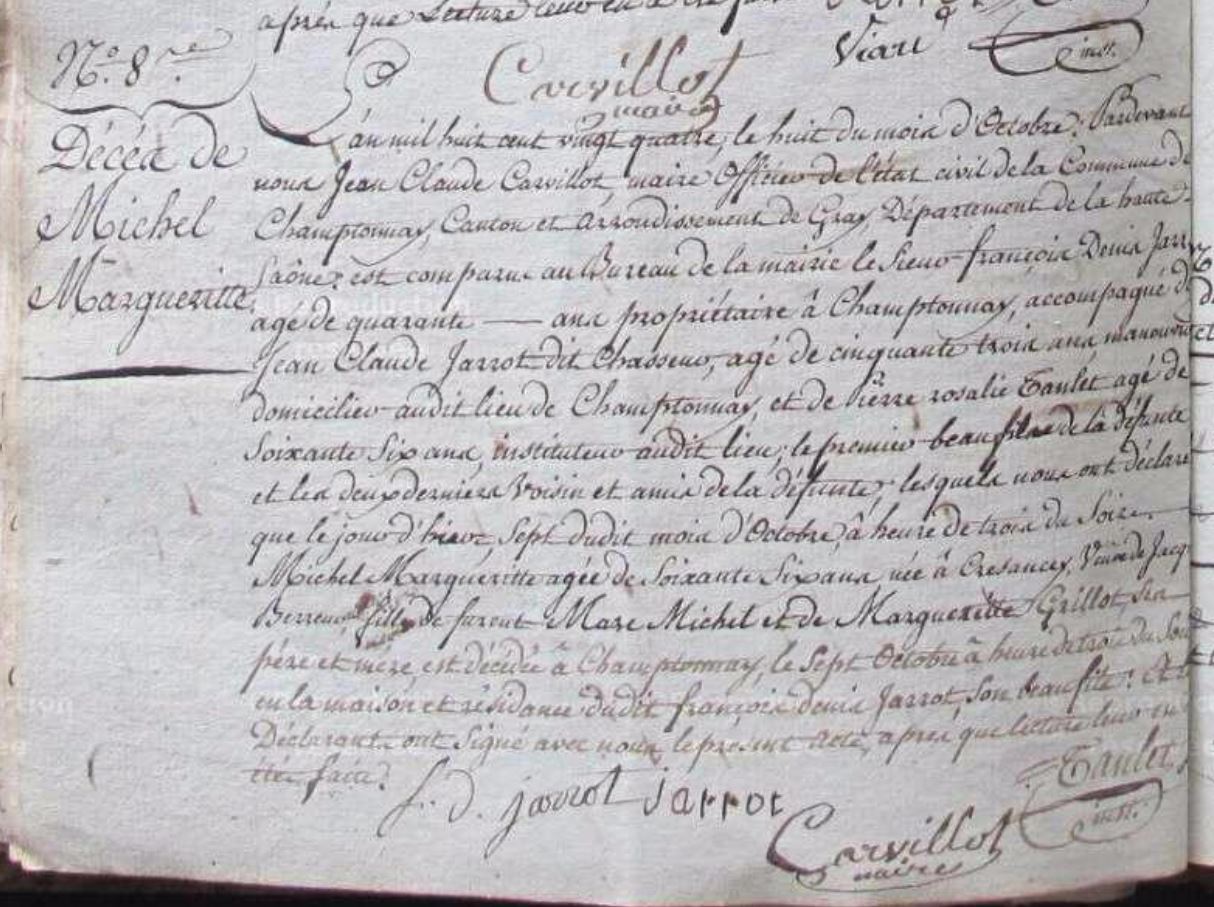 après que Lecture leur en a été
Viard
inst.
Carvillot
maire
N.° 8.me
Décès de
Michel
Margueritte
L'an mil huit cent vingt quatre, le huit du mois d'Octobre; Pardevant
nous Jean Claude Carvillot maire Officier de l'état civil de la Commune de
Champtonnay, Canton et arrondissement de Gray, Département de la haute-
Saône; est comparu au Bureau de la mairie le Sieur françois Denis Jarrot
agé de quarante — ans propriétaire à Champtonnay, accompagné de
Jean Claude Jarrot dit Chasseur, agé de cinquante trois ans manouvrier
domicilier audit lieu de Champtonnay, et de Pierre rosalie Taulet agé de
Soixante Six ans, instituteur audit lieu; le premier beaufils de la défunte
et les deux derniers Voisin et amis de la défunte; lesquels nous ont déclaré
que le jour d'hier, Sept dudit mois d'Octobre, à heure de trois du Soire
Michel Margueritte agée de Soixante Six ans née à Cresancey, Veuve de Jacq
Berreur, fille de furent Marc Michel et de Margueritte Grillot, Ses
père et mère, est décédée à Champtonnay, le Sept Octobre à heure de trois du Soir
en la maison et résidance dudit françois denis Jarrot, Son beaufils: Et les
Déclarants ont Signé avec nous le present acte, après que lecture leur en
été faite.
f. D. jarrot Jarrot
Taulet
inst.
Carvillot
maire